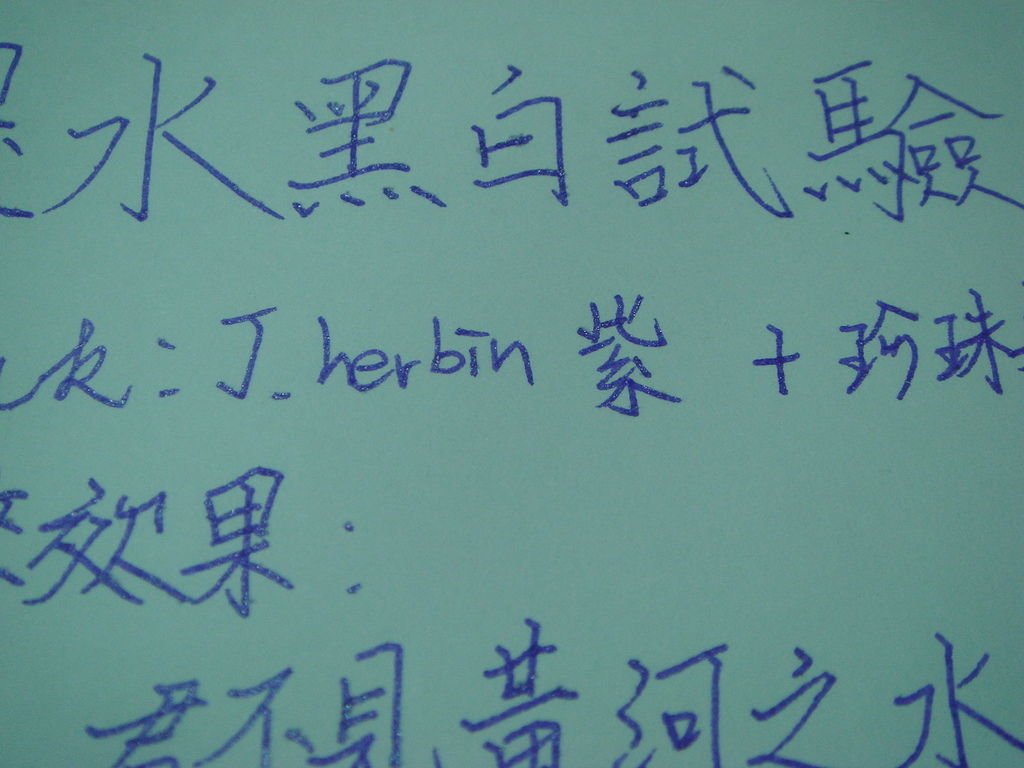 水黑白試驗
水：J. herbin 紫 + 珍珠
效果：
君不見黃河之水